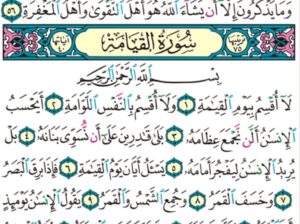 وَمَا يَذْكُرُونَ إِلَّا أَن يَشَاءَ ٱللَّهُ هُوَ أَهْلُ ٱلتَّقْوَىٰ وَأَهْلُ ٱلْمَغْفِرَةِ ٥٦
سُورَةُ ٱلْقِيَامَةِ
بِسْمِ ٱللَّهِ ٱلرَّحْمَٰنِ ٱلرَّحِيمِ
لَآ أُقْسِمُ بِيَوْمِ ٱلْقِيَٰمَةِ ١ وَلَآ أُقْسِمُ بِٱلنَّفْسِ ٱللَّوَّامَةِ ٢ أَيَحْسَبُ
ٱلْإِنسَٰنُ أَلَّن نَّجْمَعَ عِظَامَهُۥ ٣ بَلَىٰ قَٰدِرِينَ عَلَىٰٓ أَن نُّسَوِّىَ بَنَانَهُۥ ٤ بَلْ
يُرِيدُ ٱلْإِنسَٰنُ لِيَفْجُرَ أَمَامَهُۥ ٥ يَسْـَٔلُ أَيَّانَ يَوْمُ ٱلْقِيَٰمَةِ ٦ فَإِذَا بَرِقَ ٱلْبَصَرُ
٧ وَخَسَفَ ٱلْقَمَرُ ٨ وَجُمِعَ ٱلشَّمْسُ وَٱلْقَمَرُ ٩ يَقُولُ ٱلْإِنسَٰنُ يَوْمَئِذٍ